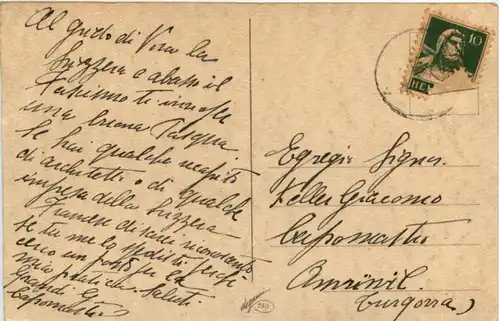 Al grido di Viva la
Svizzera e abasso il
Fascismo ti
una buona Pasqua.
Se hai qualche recapito
di architetti o di qualche
impresa della Svizzera
Francese ti sarei riconoscente
se tu me lo spedisti
cerco un posto per la
mia pratica. Saluti
Grandi G.
capomastro
10
HEL
Egregio Signor
Keller Giacomo
Capomastro
Amriswil.
(Turgovia)
750